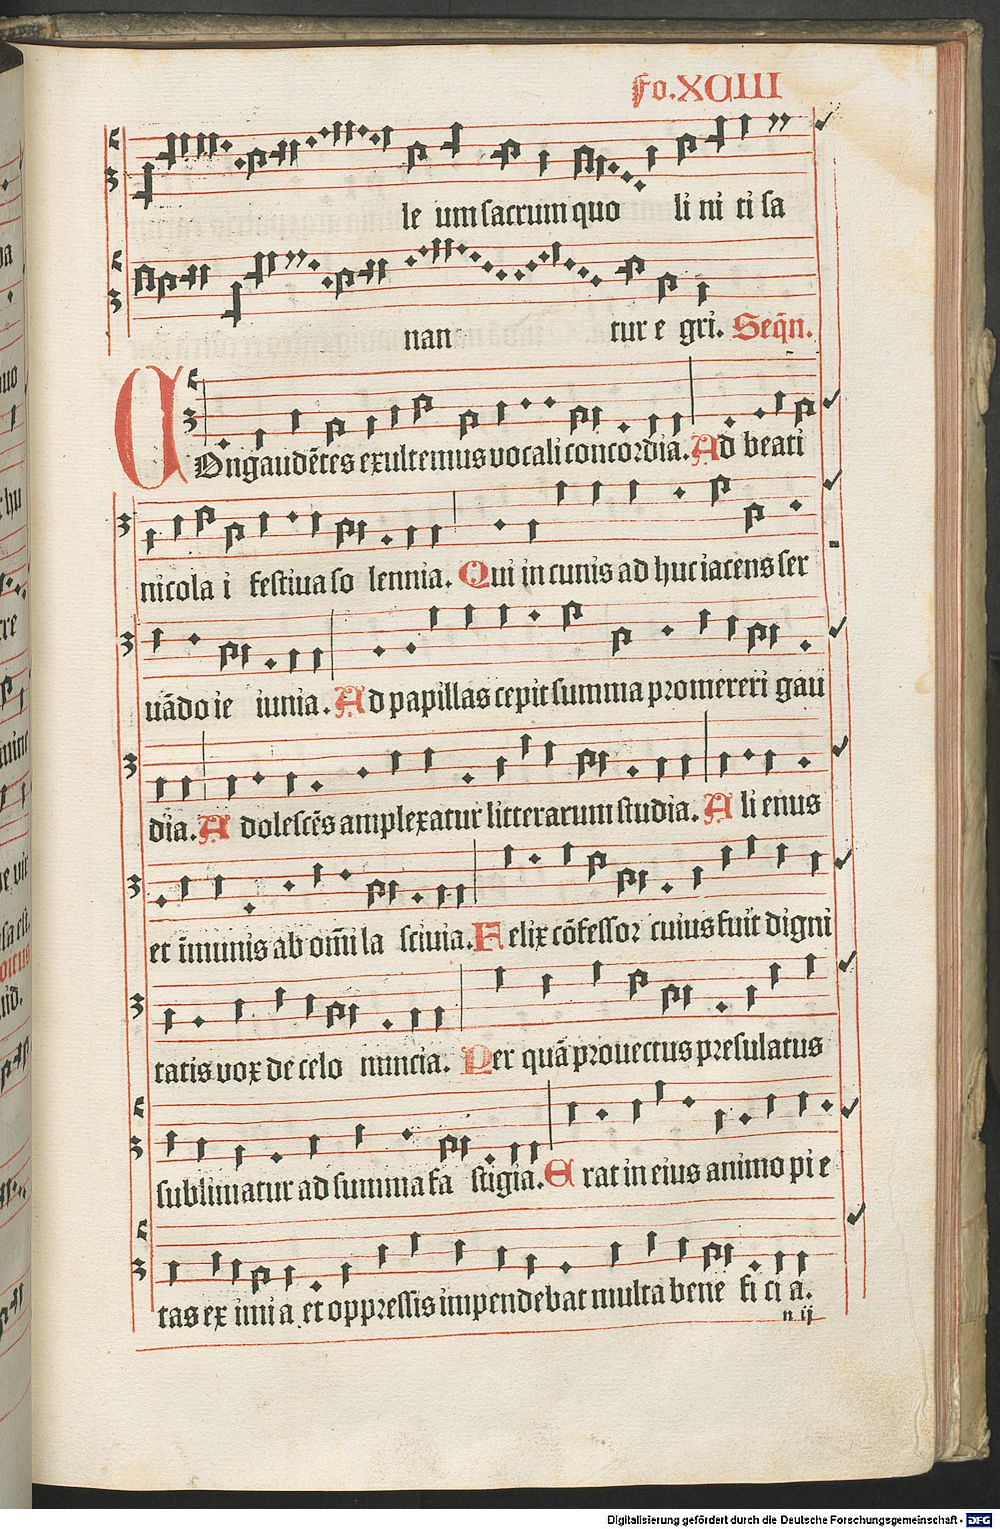 fo.XCIII
le um sacrum quo li ni ti sa
nan tur e gri. Seq̄n.
COngaudētes exultemus vocali concordia. Ad beati
nicola i festiua so lennia. Qui in cunis ad huc iacens ser
uādo ie iunia. Ad papillas cepit summa promereri gau
dia. A dolescēs amplexatur litterarum studia. A li enus
et īmunis ab om̄i la sciuia. Felix cōfessor cuius fuit digni
tatis vox de celo nuncia. Per quā prouectus presulatus
sublimatur ad summa fa stigia. E rat in eius animo pi e
tas ex imi a et oppressis impendebat multa bene fi ci a.
n ij
Digitalisierung gefördert durch die Deutsche Forschungsgemeinschaft - DFG